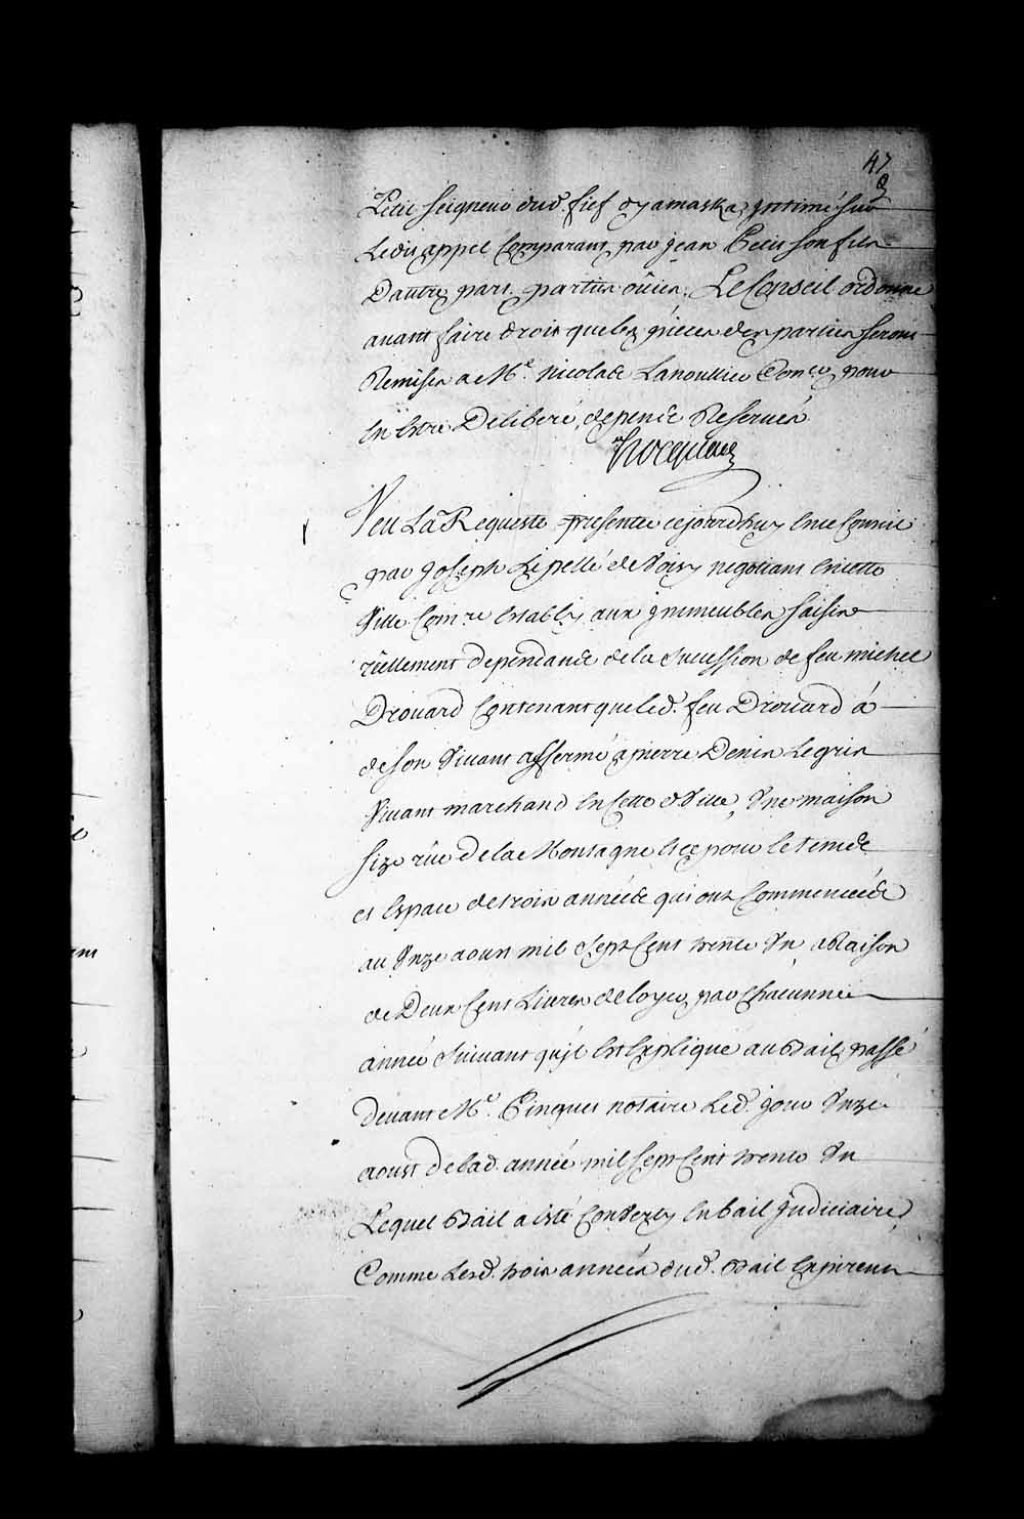 47
Petit Seigneur dud. fief dyamaska, Intimé Sur
Ledit appel Comparant par jean Petit son fils
D'autre part, parties oüies; Le Conseil ordonne
avant faire droit que les pièces des parties seront
Remises a Me. Nicolas Lanoullier Conser. pour
En Estre Deliberé, depens Reservés
Hocquart
Veu La Requeste presentée cejourdhuy En ce Conseil
par Joseph de Voisy negotiant En cette
Ville Comre. Establi aux jmmeubles Saisies
réellement dependans de la Sucession de feu michel
Drouard Contenant que led. feu Drouard á
de son Vivant affermé a pierre Denis Legris
Vivant marchand En Cette Ville, Une maison
Size rüe De la Montagne pour le tems
et Espace de trois années qui ont Commencées
au Unze aoust mil Sept Cent trente Un, a Raison
de Deux Cens Livres de loyer par Chacunne
année Suivant qu'jl Est Expliqué au Bail passé
devant Me. Pinguet notaire Led. jour Unze
aoust de lad. année mil sept Cent trente Un
Lequel Bail a Esté Converty En bail judiciaire,
Comme Lesd. trois années dud. Bail Expirent